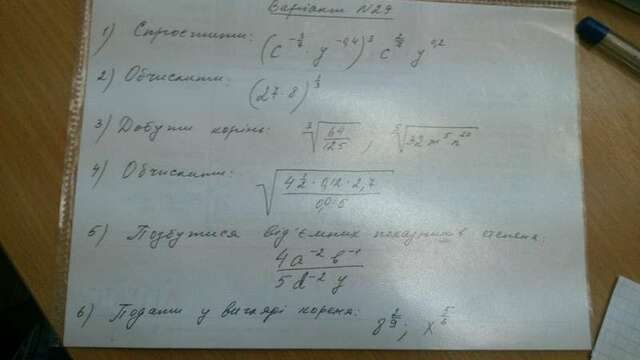 Варіант N29
1) Спростити: (c^{-\frac{3}{4}} · y^{-0,4})^3 c^{\frac{2}{4}} · y^{0,2}
2) Обчислити: (27·8)^{\frac{1}{3}}
3) Добути корінь: \sqrt[3]{\frac{64}{125}}, \sqrt[5]{32 m^5 n^{20}}
4) Обчислити: \sqrt{\frac{4\frac{1}{2} · 0,12 · 2,7}{0,0·6}}
5) Позбутися від'ємних показників степеня:
\frac{4a^{-2} b^{-1}}{5d^{-2} y}
6) Подати у вигляді кореня: 8^{\frac{2}{9}}; x^{\frac{5}{6}}